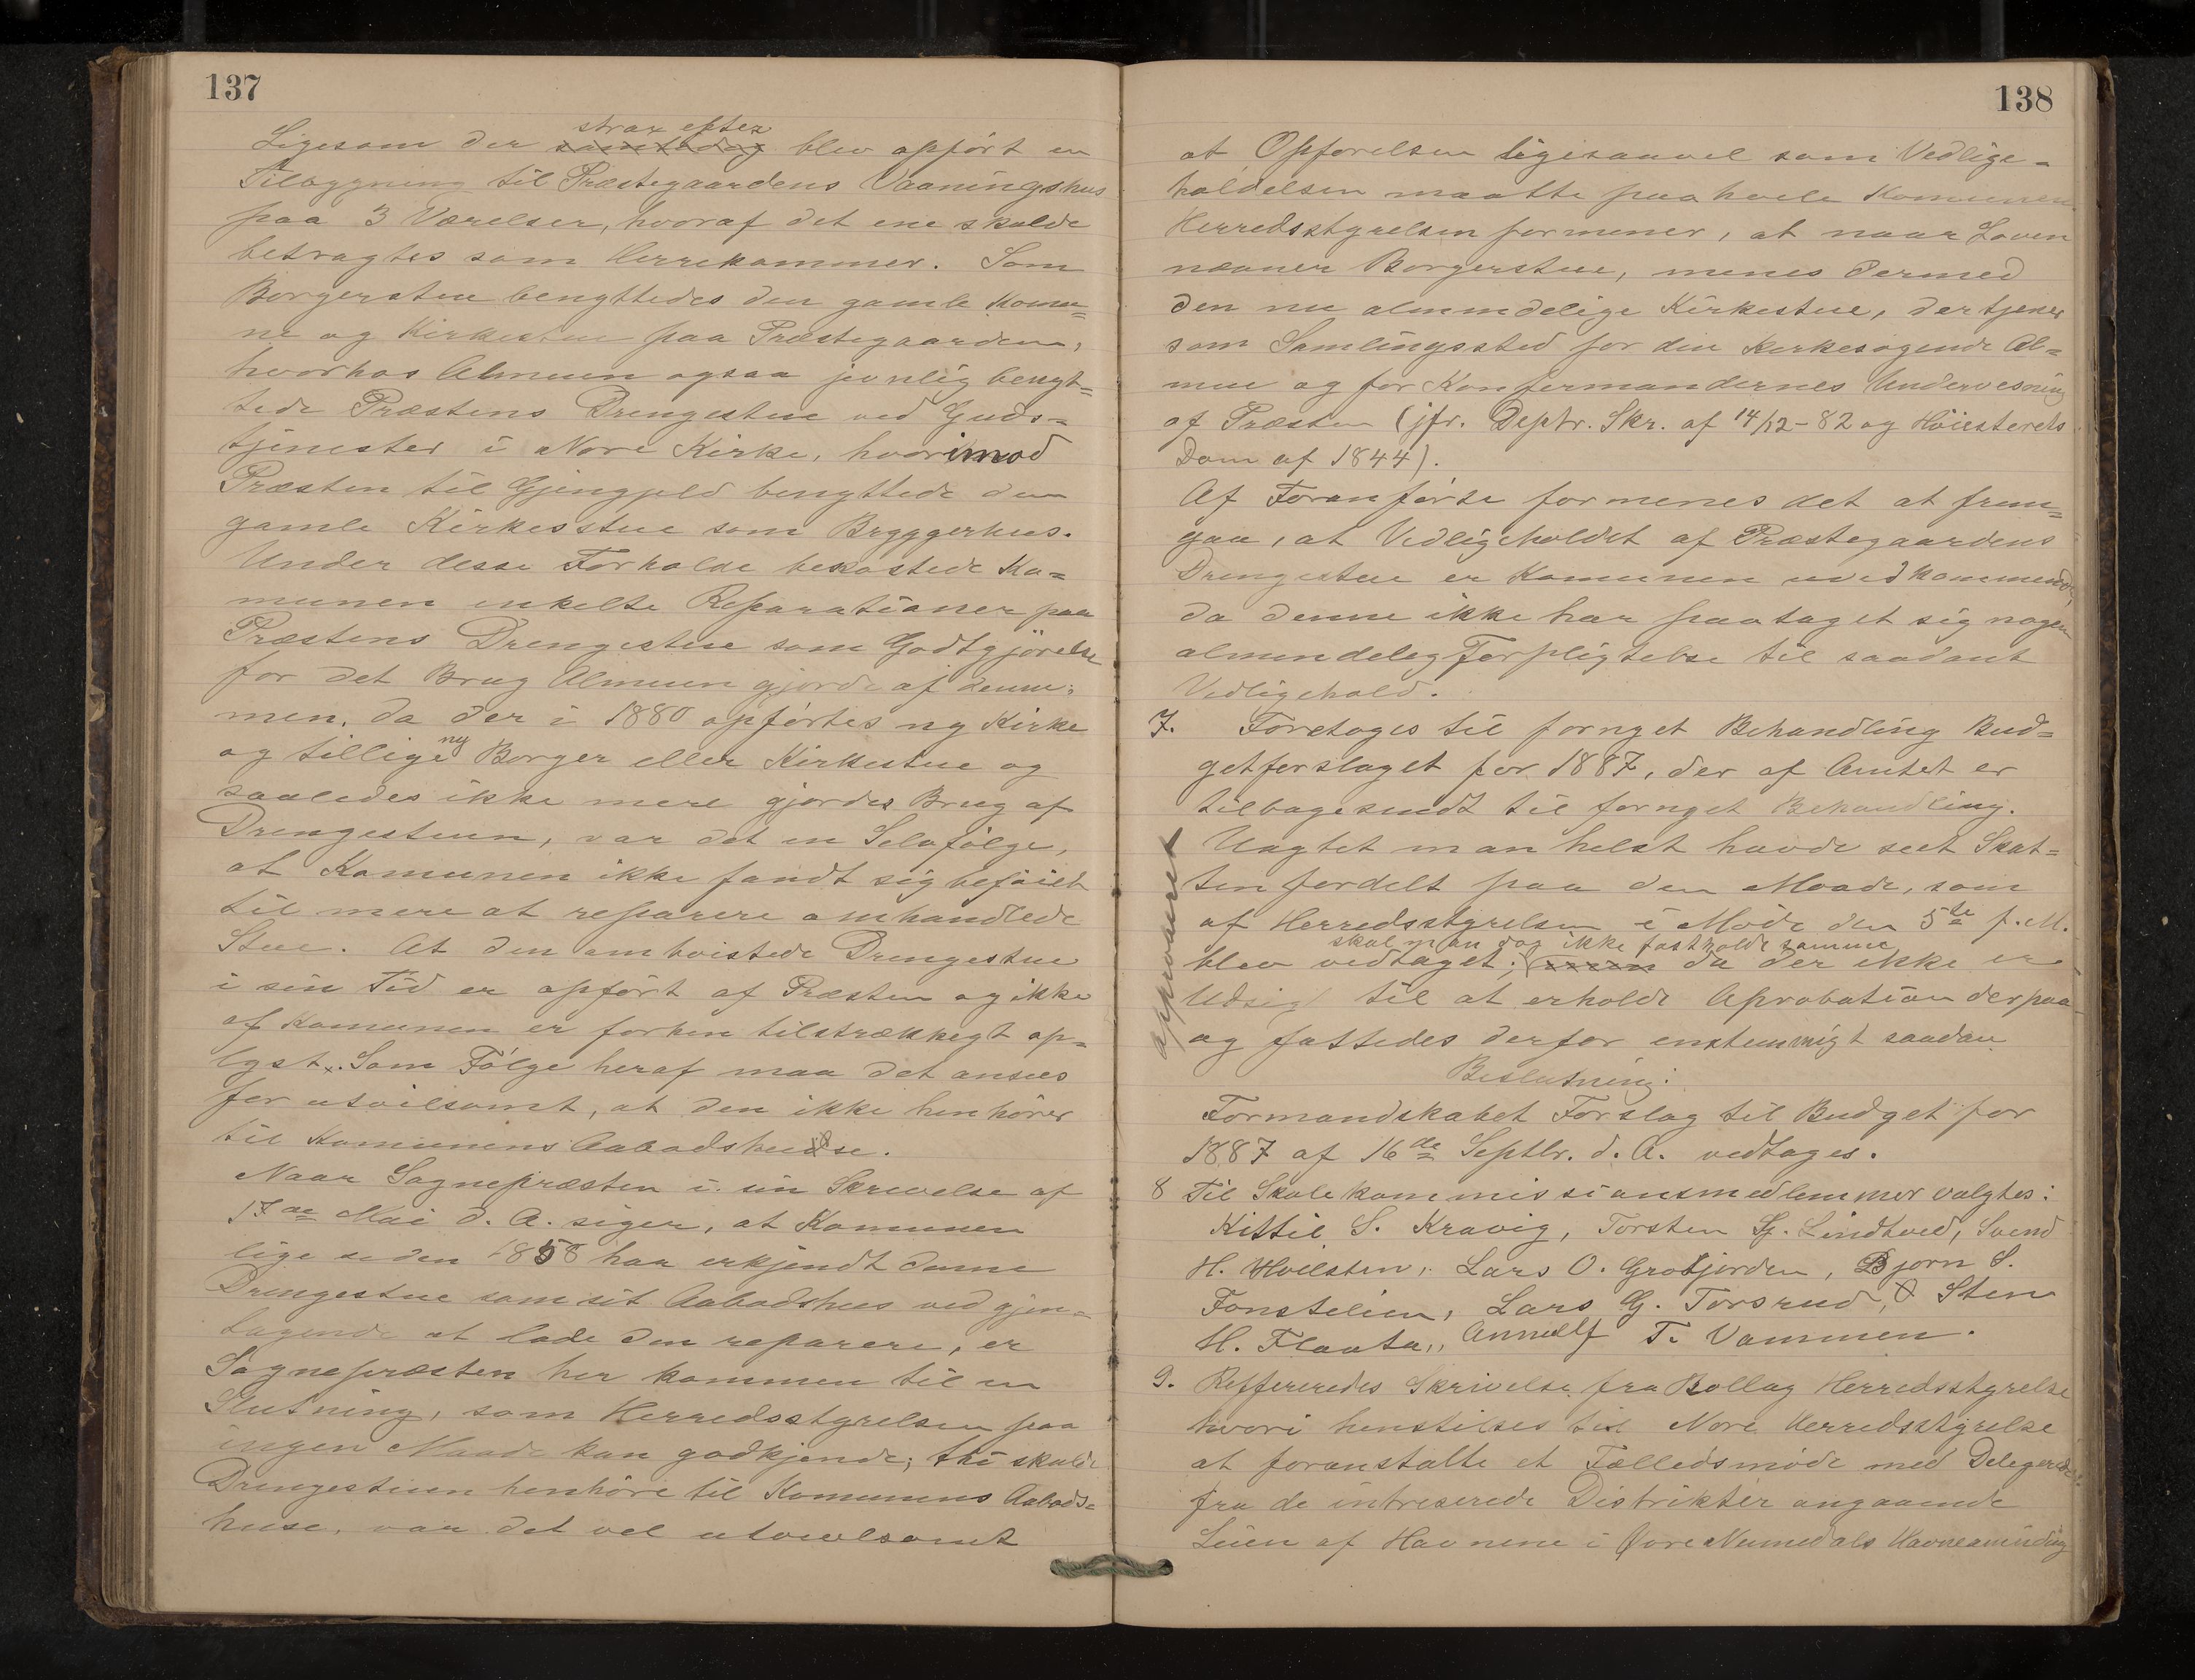 137
strax efter
Ligesom der samtidig blev opført en
Tilbygning til Præstegaardens Vaaningshus
paa 3 Værelser, hvoraf det ene skulde
betragtes som Herrekammer. Som
Borgerstue benyttedes den gamle Komu=
ne og Kirkestue paa Præstegaarden,
hvorhos Almuen ogsaa jevnlig benyt=
tede Præstens Drengestue ved Guds=
tjenester i Nore Kirke, hvorimod
Præsten til Gjengjeld benyttede den
gamle Kirkesstue som Brygggerhus.
Under desse Forholde bekostede Ko=
munen enkelte Reparationer paa
Præstens Drengestue som Godtgjörelse
for det Brug Almuen gjorde af denne;
men, da der i 1880 opførtes ny Kirke
og tillige ny Borger eller Kirkestue og
saaledes ikke mere gjordes Brug af
Drengestuen, var det en Selvfölge,
at Komunen ikke fandt sig beföiet
til mere at reparere omhandlede
Stue. At den omtvistede Drengestue
i sin Tid er opført af Præsten og ikke
af Komunen er forhen tilstrækkegt op=
lyst. Som Fölge heraf maa det ansees
for utvilsomt, at den ikke henhörer
til Komunens Aabodshuse.
Naar Sognepræsten i sin Skrivelse af
17de Mai d. A. siger, at Komunen
lige siden 1858 har erkjendt denne
Drengestue som sit Aabodshus ved gjen=
tagende at lade den reparere, er
Sognepræsten her kommen til en
Slutning, som Herredsstyrelsen paa
ingen Maade kan godkjende; thi skulde
Drengestuen henhöre til Komunens Aabods=
huse, var det vel utvivlsomt
138
at Opførelsen ligesaavel som Vedlige=
holdelsen maatte paahvile Komunen
Herredsstyrelsen formener, at naar Loven
nævner Borgerstue, menes dermed
den nu almindelige Kirkestue, der tjener
som Samlingssted for den kirkesøgende Al=
mue og for Konfermandernes Undervisning
af Præsten (jfr. Deptr. Skr. af 14/12-82 og Höiesterets
Dom af 1844).
Af Foranførte formenes det at frem=
gaa, at Vedligeholdet af Præstegaardens
Drengestue er Komunen uvedkommende,
da denne ikke har paataget sig nogen
almindeleg Forpligtelse til saadant
Vedligehold.
7. Foretoges til fornyet Behandling Bud=
getforslaget for 1887, der af Amtet er
tilbagesendt til fornyet Behandling.
approberet
Uagtet man helst havde seet Skat=
ten fordelt paa den Maade, som
af Herredsstyrelsen i Möde den 5te f. M.
skal man dog ikke fastholde samme
blev vedtaget; da der ikke er
Udsigt til at erholde Aprobation derpaa
og fattedes derfor enstemmigt saadan
Beslutning:
Formandskabet Forslag til Budget for
1887 af 16de Septbr. d. A. vedtages.
8 Til Skolekommissionsmedlemmer valgtes:
Kittil S. Kravig, Torsten Sj. Lindtved, Svend
H. Hvilsten, Lars O. Grotjorden, Bjorn S.
Fonstelien, Lars G. Torsrud, Sten
H. Flaata, Annulf T. Vammen.
9. Reffereredes Skrivelse fra Rollag Herredsstyrelse
hvori henstilles til Nore Herredsstyrelse
at foranstalte et Fælledsmöde med Delegerede
fra de intreserede Distrikter angaaende
Leien af Havnene i Øvre Numedals Havneaminding